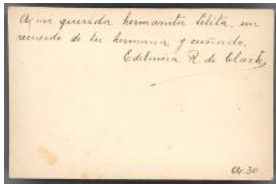 A mi querida hermanita Lolita, un
recuerdo de tu hermana y cuñado.
Edelmira R. de Clark